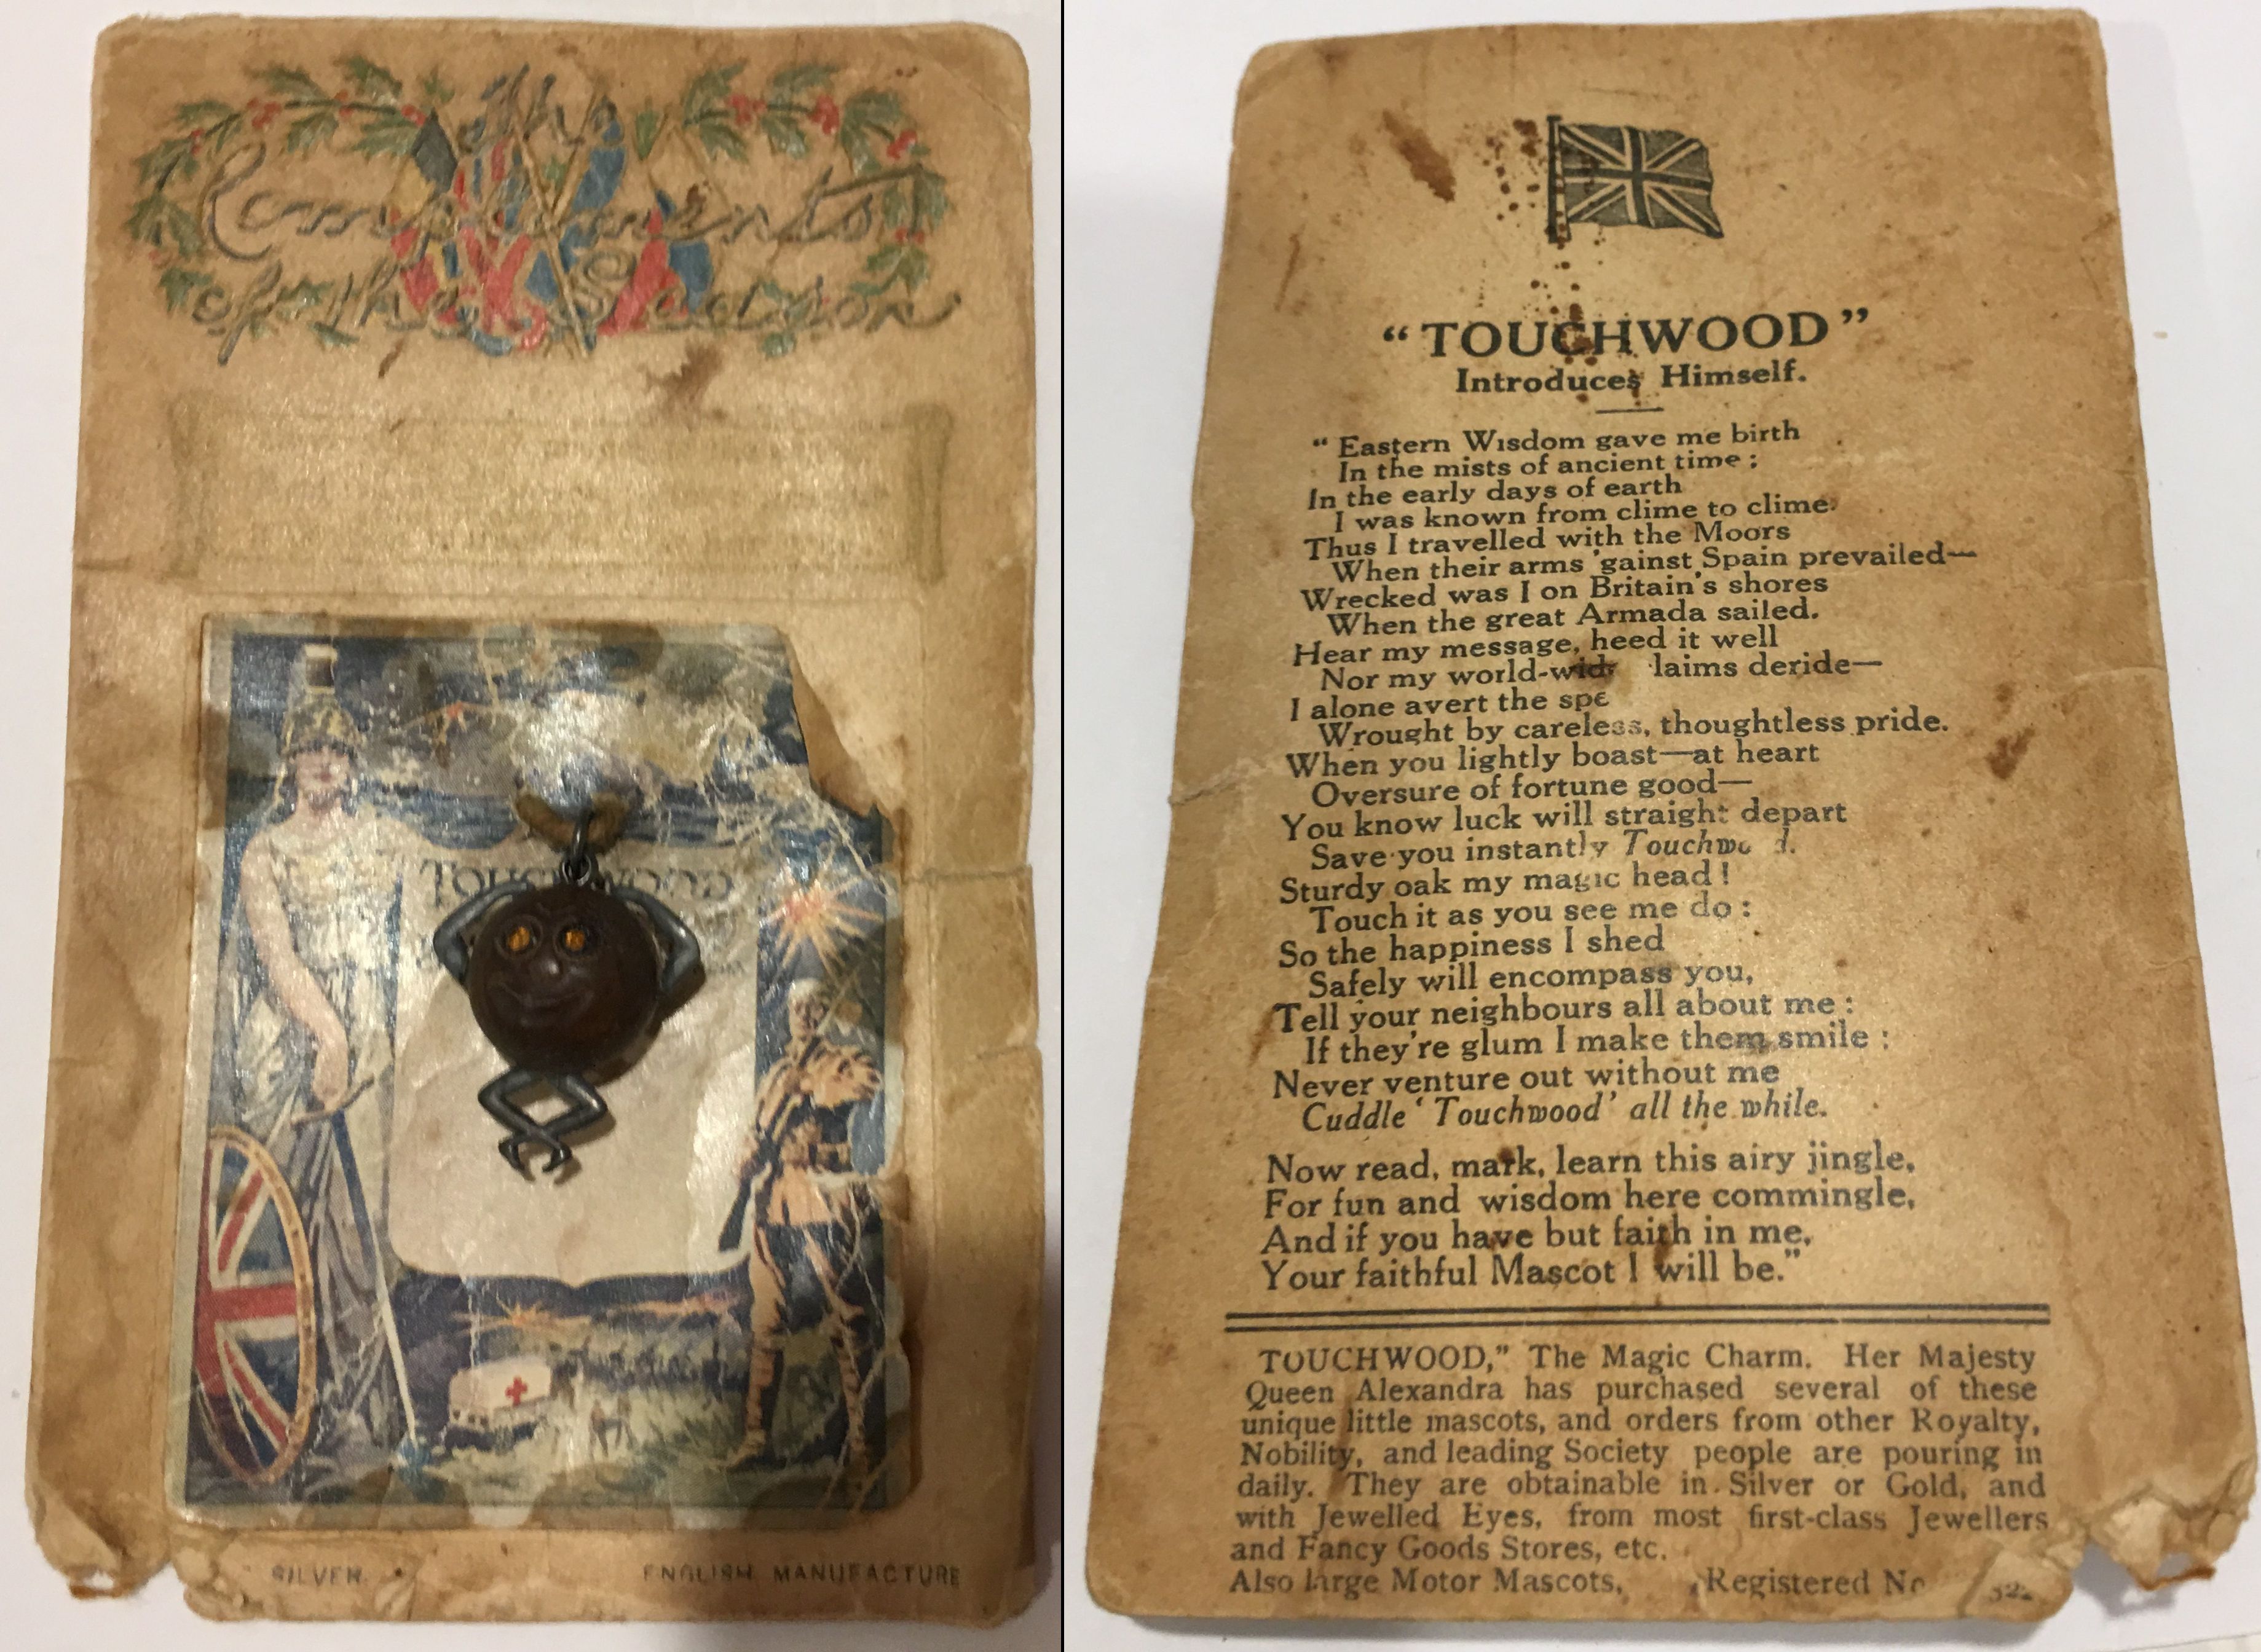 The
Compliments
of the Season
TOUCHWOOD
SILVER. ENGLISH MANUFACTURE
"TOUCHWOOD"
Introduces Himself.
"Eastern Wisdom gave me birth
In the mists of ancient time;
In the early days of earth
I was known from clime to clime.
Thus I travelled with the Moors
When their arms 'gainst Spain prevailed—
Wrecked was I on Britain's shores
When the great Armada sailed.
Hear my message, heed it well
Nor my world-wide laims deride—
I alone avert the spe
Wrought by careless, thoughtless pride.
When you lightly boast—at heart
Oversure of fortune good—
You know luck will straight depart
Save you instantly Touchwo d.
Sturdy oak my magic head!
Touch it as you see me do:
So the happiness I shed
Safely will encompass you,
Tell your neighbours all about me:
If they're glum I make them smile:
Never venture out without me
Cuddle 'Touchwood' all the while.
Now read, mark, learn this airy jingle,
For fun and wisdom here commingle,
And if you have but faith in me,
Your faithful Mascot I will be."
TOUCHWOOD," The Magic Charm. Her Majesty
Queen Alexandra has purchased several of these
unique little mascots, and orders from other Royalty,
Nobility, and leading Society people are pouring in
daily. They are obtainable in Silver or Gold, and
with Jewelled Eyes, from most first-class Jewellers
and Fancy Goods Stores, etc.
Also large Motor Mascots. Registered No